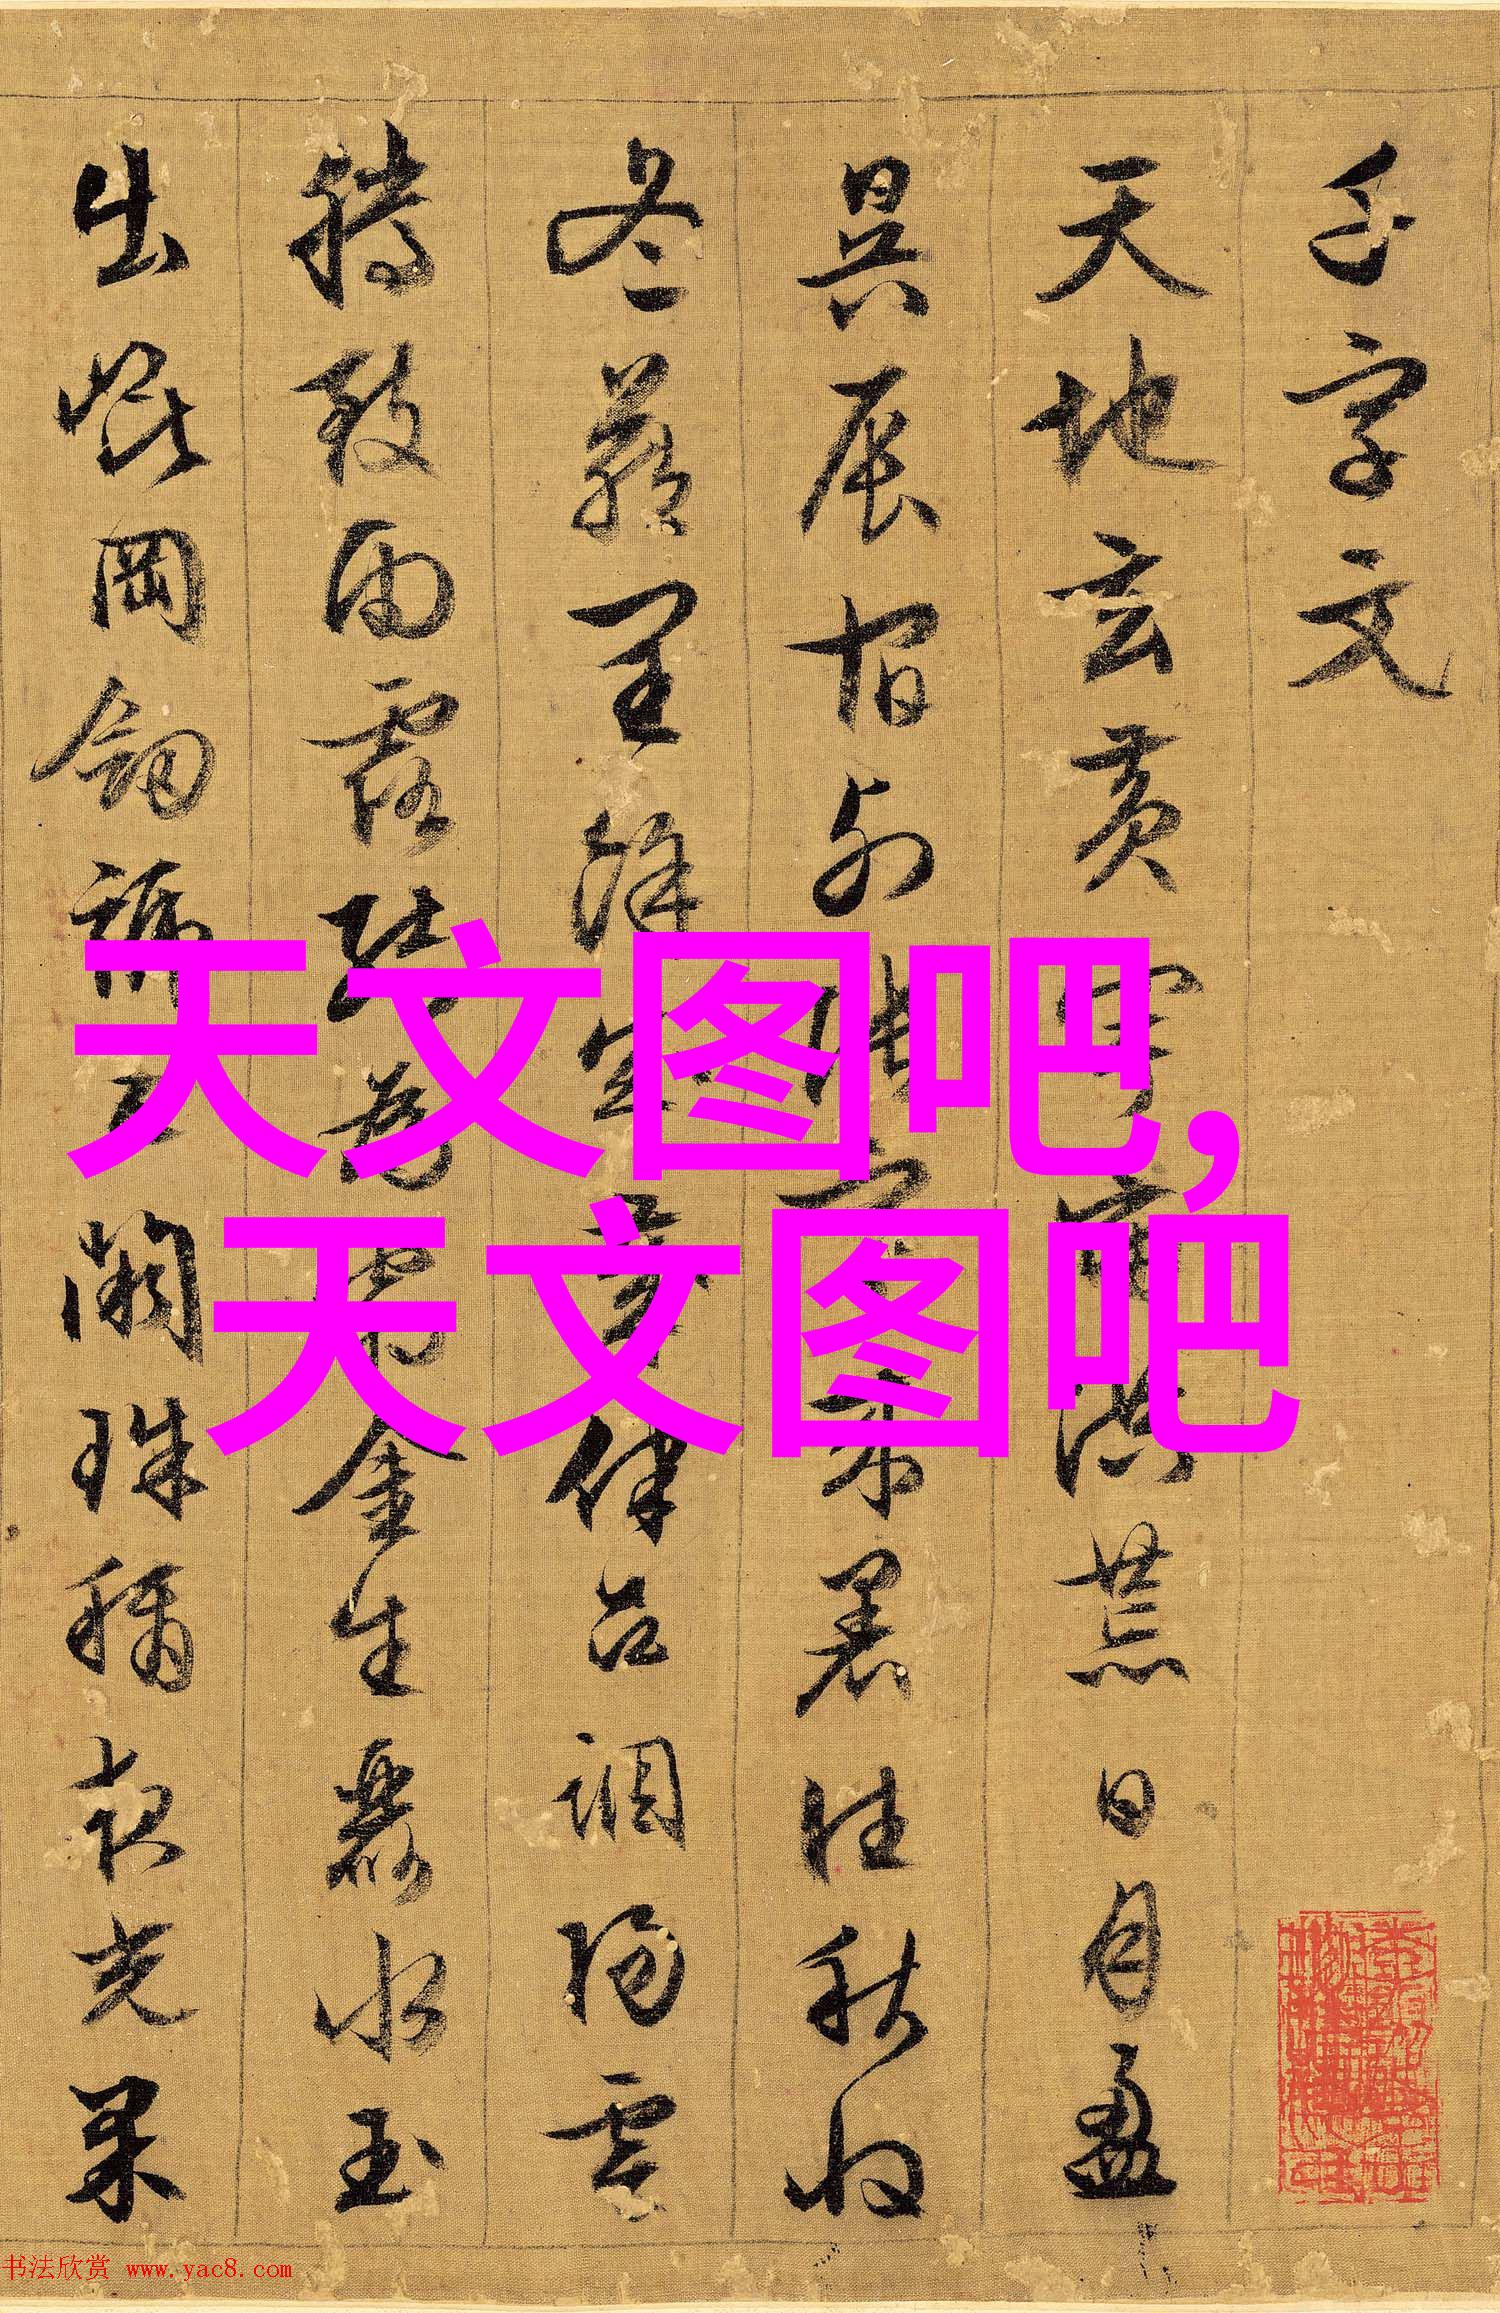 千字文
天地玄黄宇宙洪荒日月盈
昃辰宿列张寒来暑往秋收
冬藏闰馀成岁律吕调阳云
腾致雨露结为霜金生丽水玉
出崑冈剑号巨阙珠称夜光果
天文图吧,
天文图吧
书法欣赏 www.yac8.com